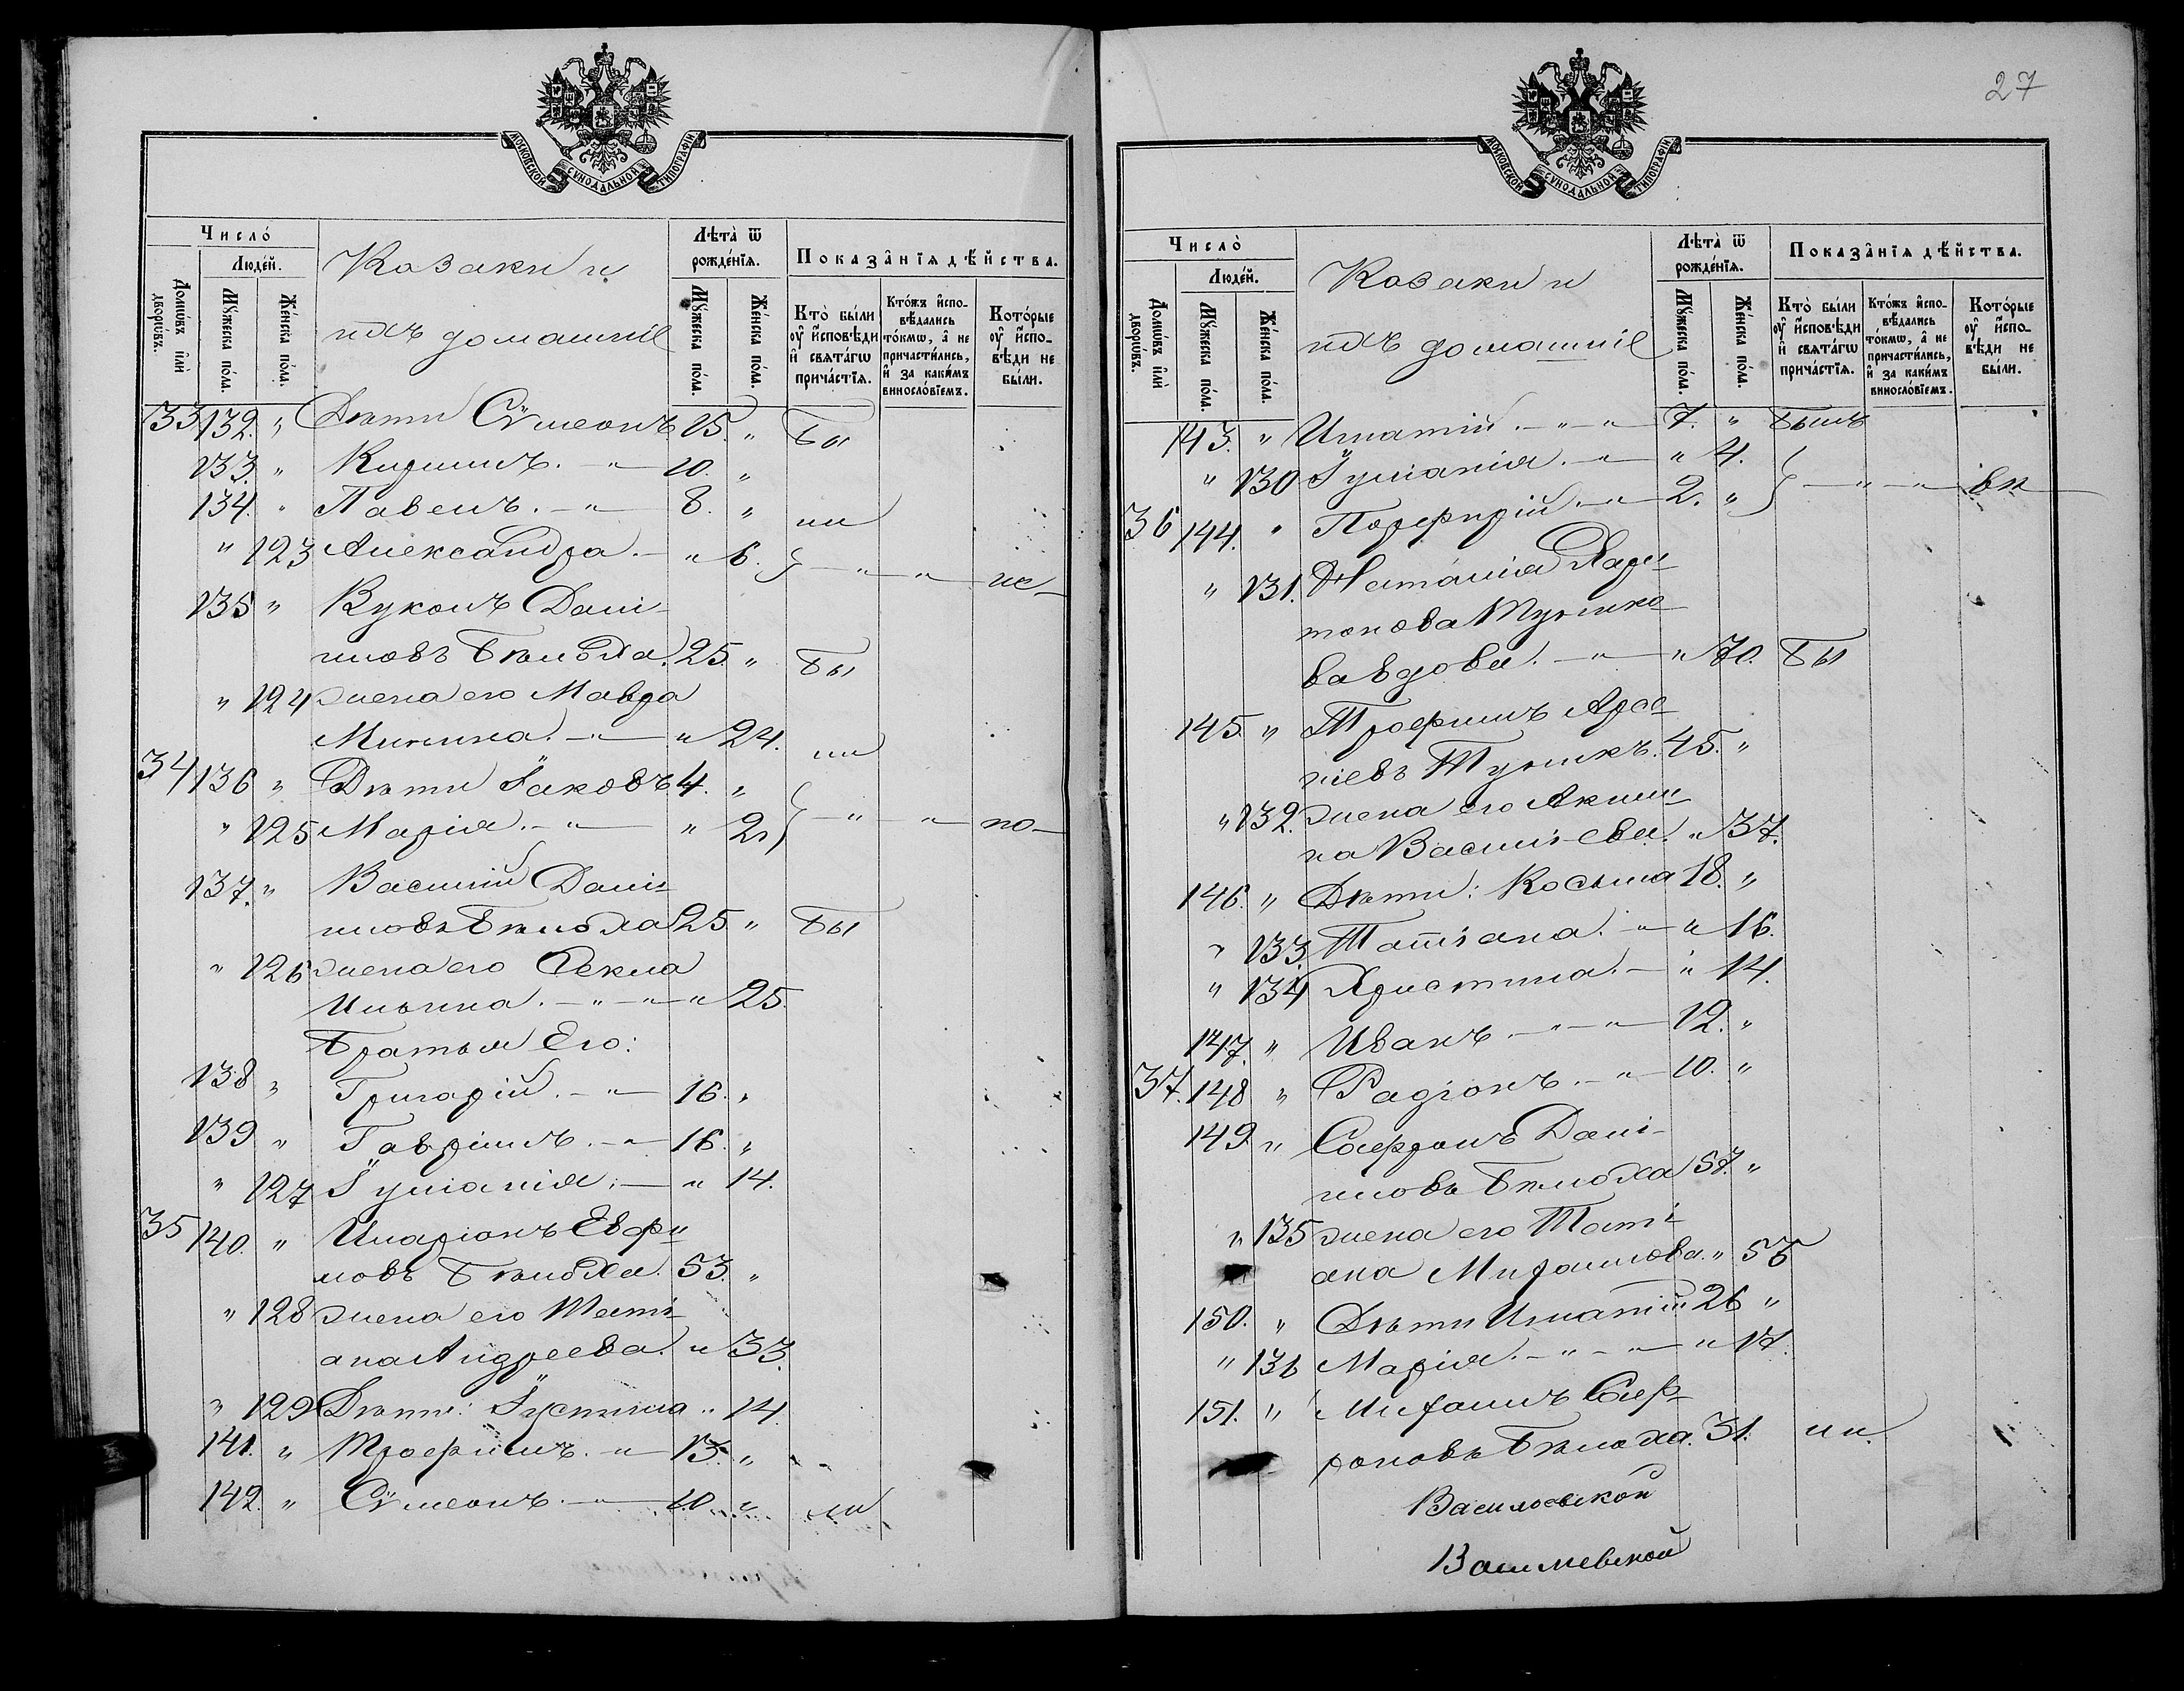 МОСКОВСКОЙ СУНОДАЛЬНОЙ ТИПОГРАФІИ
Число̀
Люде́й.
Домѡ́въ и҆лѝ дворѡ́въ.
Мꙋ́жеска по́ла.
Же́нска по́ла.
Козаки и
ихъ домашніе
Лѣта̀ ѿ рожде́нїѧ.
Мꙋ́жеска по́ла.
Же́нска по́ла.
Показа̂нїѧ дѣ́йства.
Кто̀ бы́ли ᲂу҆ и҆сповѣ́ди и҆ свѧта́гѡ прича́стїѧ.
Кто́жъ и҆сповѣ́дались то́кмѡ, а҆ не причасти́лись, и҆ за каки́мъ винослові́емъ.
Кото́рые ᲂу҆ и҆сповѣ́ди не бы́ли.
33 132. " Дѣти Сѵмеонъ 15. " Бы
133. " Кирилъ. - " - 10. "
134. " Павелъ. - " - 8. " ли
" 123 Александра. - " 6. } - " - " - не -
135 " Вуколъ Дані-
иловъ Бѣлоха. 25. " Бы
" 124 жена его Мавра
Минина. - " - " 24. ли
34 136 " Дѣти Іаковъ 4. "
" 125 Марія. - " - " 2. } - " - " - по -
137. " Василій Дані-
иловъ Бѣлоха 25. " Бы
" 126 жена его Фекла
Ильина. - " - " - " 25.
Братья Его:
138 " Григорій. - " - 16. "
139 " Гавріилъ. - " - 16. "
" 127 Іуліанія. - " 14.
35 140. " Иларіонъ Евфи
мовъ Бѣлоха. 53. "
" 128 жена его Таті-
ана Андреева. " 33.
" 129 Дѣти: Іустина " 14.
141. " Трофимъ. - " - 13. "
142. " Сѵмеонъ. - " - 10. " ли
27
МОСКОВСКОЙ СУНОДАЛЬНОЙ ТИПОГРАФІИ
Число̀
Люде́й.
Домѡ́въ и҆лѝ дворѡ́въ.
Мꙋ́жеска по́ла.
Же́нска по́ла.
Козаки и
ихъ домашніе
Лѣта̀ ѿ рожде́нїѧ.
Мꙋ́жеска по́ла.
Же́нска по́ла.
Показа̂нїѧ дѣ́йства.
Кто̀ бы́ли ᲂу҆ и҆сповѣ́ди и҆ свѧта́гѡ прича́стїѧ.
Кто́жъ и҆сповѣ́дались то́кмѡ, а҆ не причасти́лись, и҆ за каки́мъ винослові́емъ.
Кото́рые ᲂу҆ и҆сповѣ́ди не бы́ли.
143. " Игнатій. - " - " 7. " Былъ
" 130 Іуліанія. - " - " 4.
36 144. " Порфирій. - " - 2. " } - " - " -
" 131. Наталія Хари-
тонова Тупико
ва вдова. - " - " 70. Бы
145. " Трофимъ Арсе-
ніевъ Тупикъ. 45. "
" 132. жена его Акили-
на Васильева. " 37.
146. " Дѣти: Косьма 18. "
" 133. Татіана. - " 16.
" 134 Христина. - " 14.
147. " Иванъ - " - " - 12. "
37. 148 " Радіонъ. - " - 10. "
149. " Софронъ Дані-
иловъ Бѣлоха 57. "
" 135 жена его Таті-
ана Михаилова. " 56
150. " Дѣти Игнатій 26 "
" 136 Марія. - " - " - " 17.
151. " Михаилъ Соф-
роновъ Бѣлоха. 31. ли.
Васильевской
Василевской